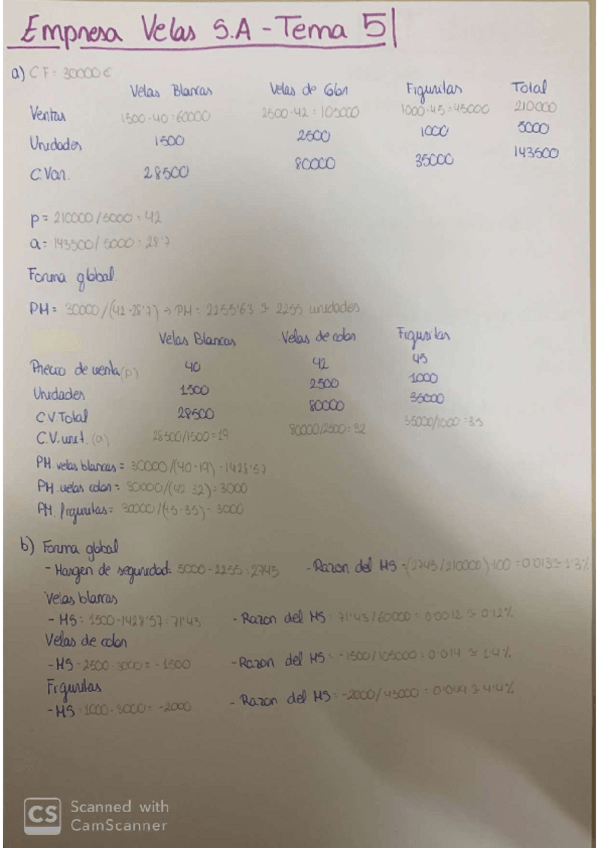 Empresa Velas S.A - Tema 5
a) CF = 30000€
Velas Blancas Velas de Color Figuritas Total
Ventas 1500·40=60000 2500·42=105000 1000·45=45000 210000
Unidades 1500 2500 1000 5000
C.Var. 28500 80000 35000 143500
p = 210000/5000 = 42
a = 143500/5000 = 28'7
Forma global
PM = 30000/(42-28'7) → PM = 2255'63 ≃ 2255 unidades
Velas Blancas Velas de color Figuritas
Precio de venta (p) 40 42 45
Unidades 1500 2500 1000
C.V Total 28500 80000 35000
C.V. unit. (a) 28500/1500=19 80000/2500=32 35000/1000=35
PM. velas blancas = 30000/(40-19) = 1428'57
PM. velas color = 30000/(42-32) = 3000
PM. figuritas = 30000/(45-35) = 3000
b) Forma global
- Margen de seguridad = 5000-2255 = 2745 - Razon del MS = (2745/210000)·100 = 0'013 ≃ 1'3%
Velas blancas
- MS = 1500-1428'57 = 71'43 - Razon del MS = 71'43/60000 = 0'0012 ≃ 0'12%
Velas de color
- MS = 2500-3000 = -1500 - Razon del MS = -1500/105000 = 0'014 ≃ 1'4%
Figuritas
- MS = 1000-3000 = -2000 - Razon del MS = -2000/45000 = 0'044 ≃ 4'4%
CS Scanned with
CamScanner